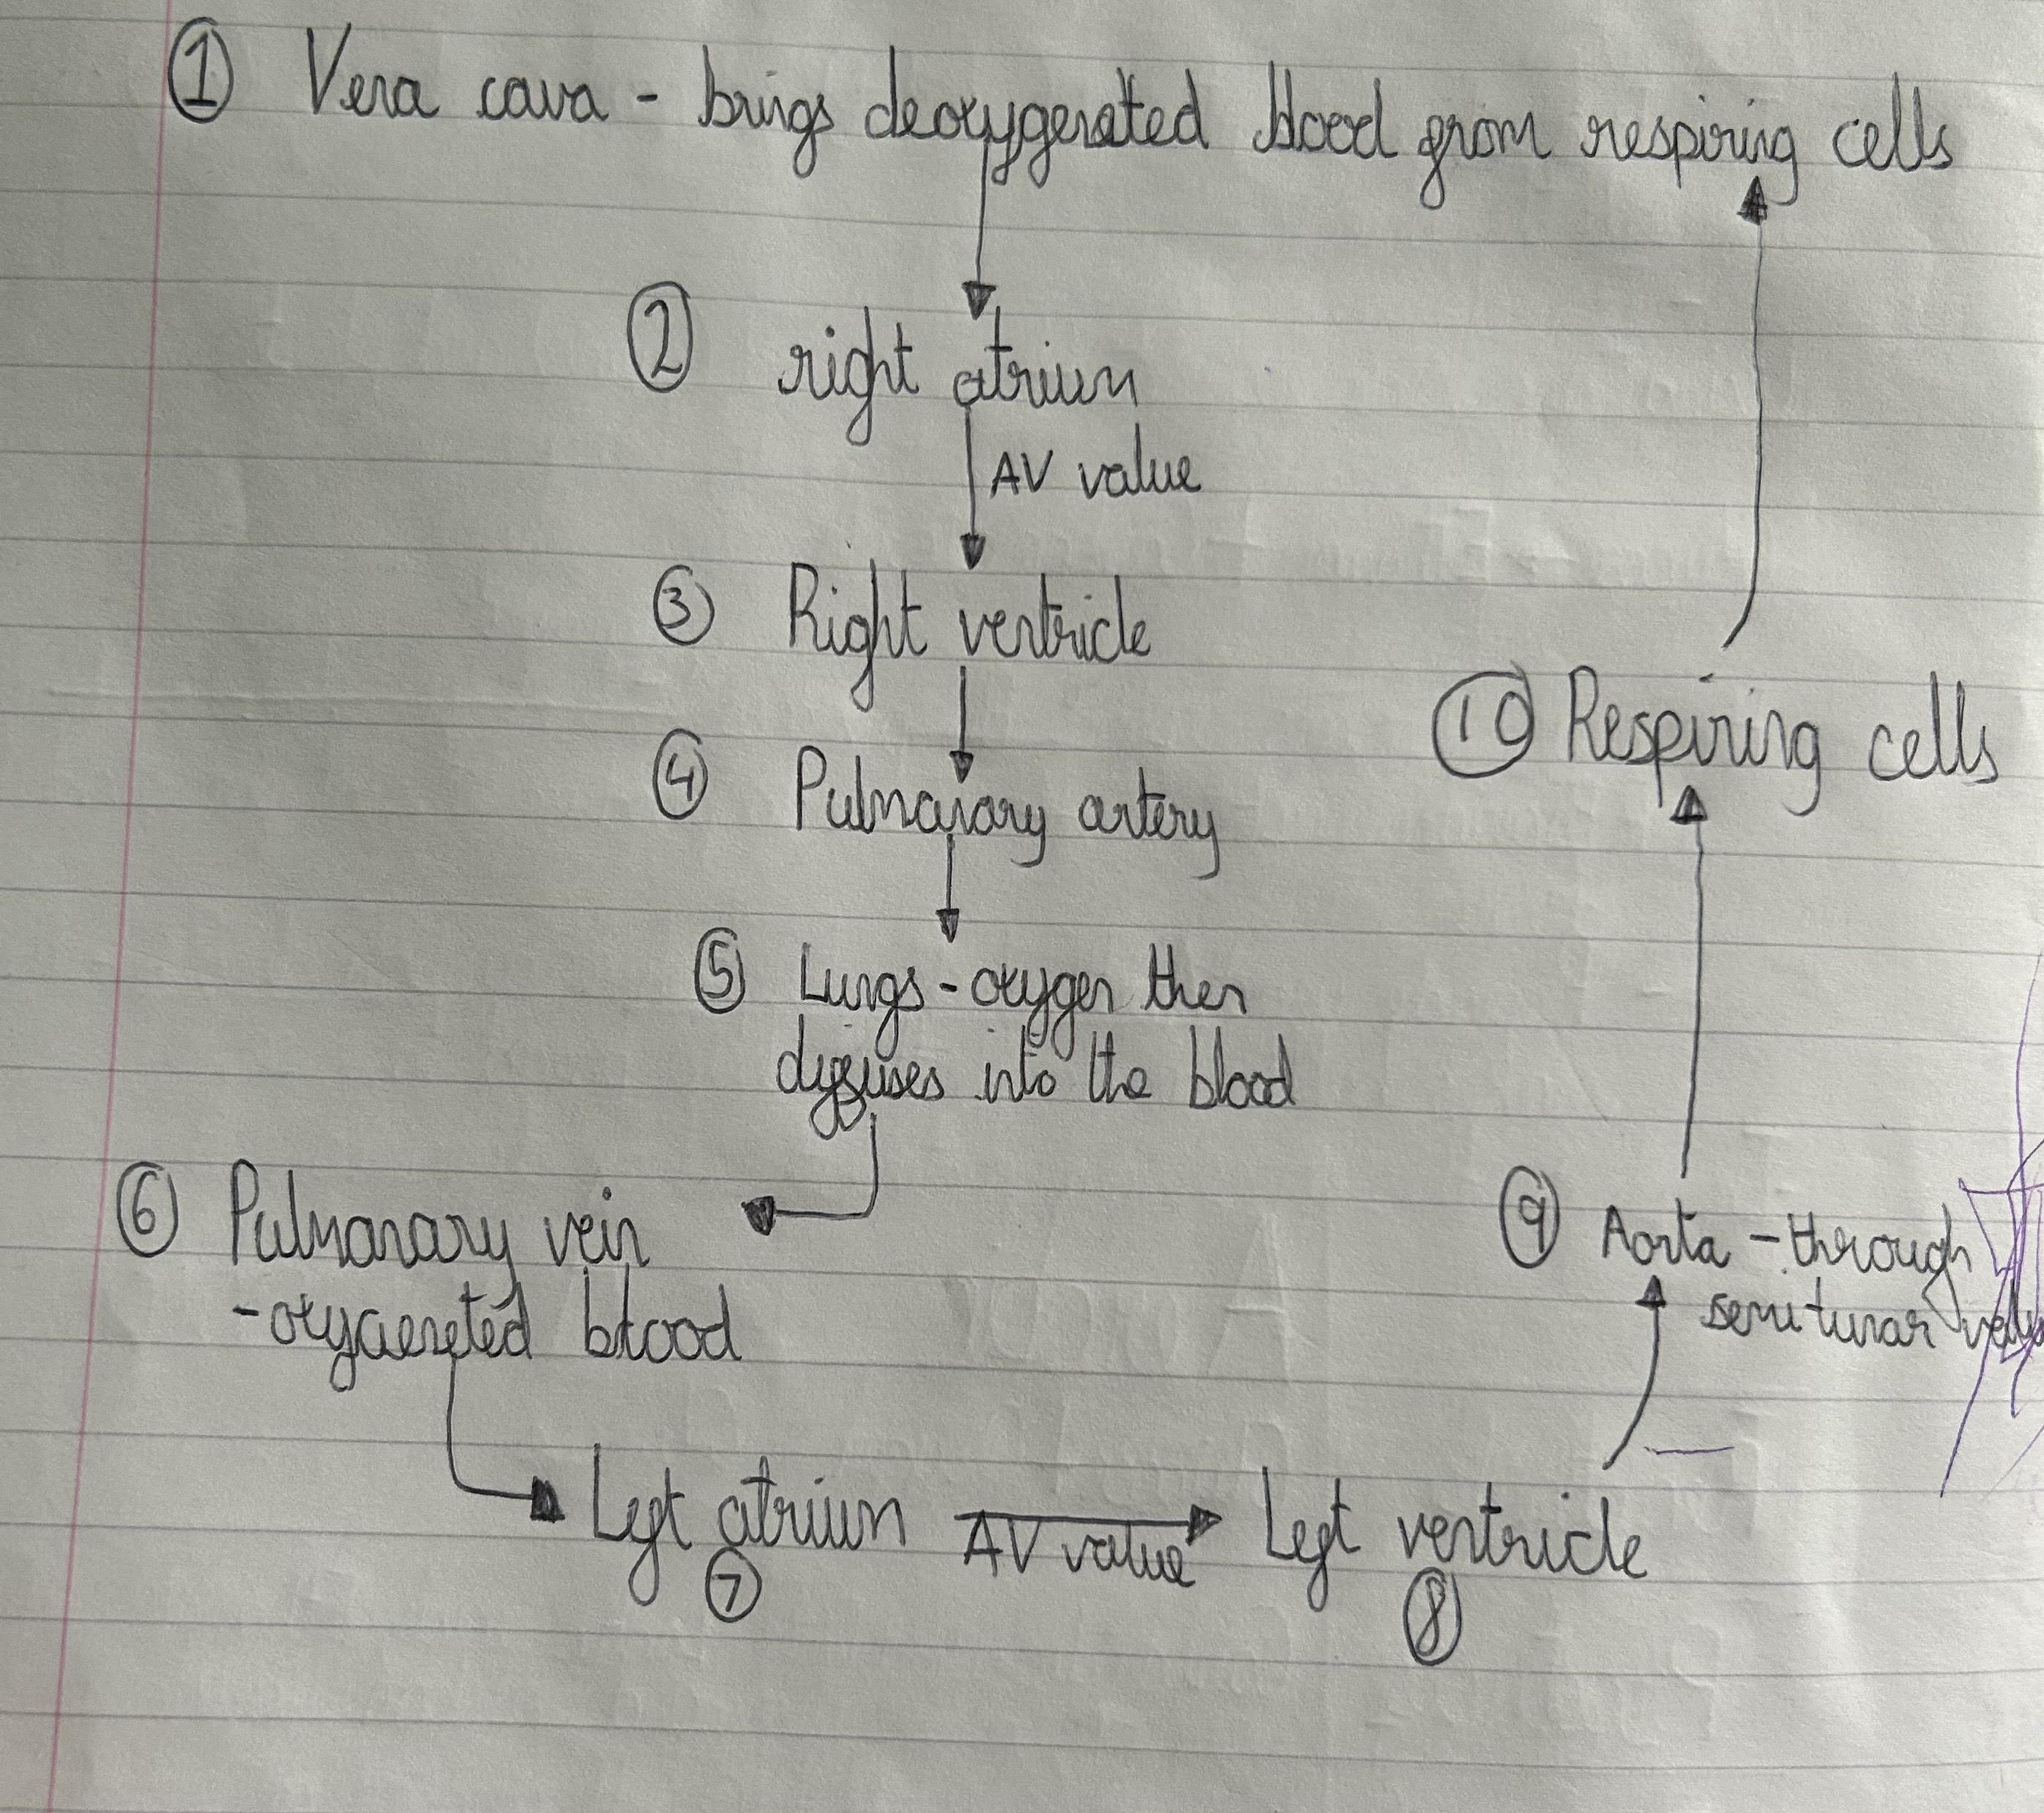 ① Vena cava - brings deoxygenated blood from respiring cells
② right atrium
AV value
③ Right ventricle
④ Pulmanary artery
⑤ Lungs - oxygen then
diffuses into the blood
⑥ Pulmanary vein
- oxygenated blood
Left atrium
⑦
AV value
Left ventricle
⑧
⑨ Aorta - through
semi lunar
⑩ Respiring cells